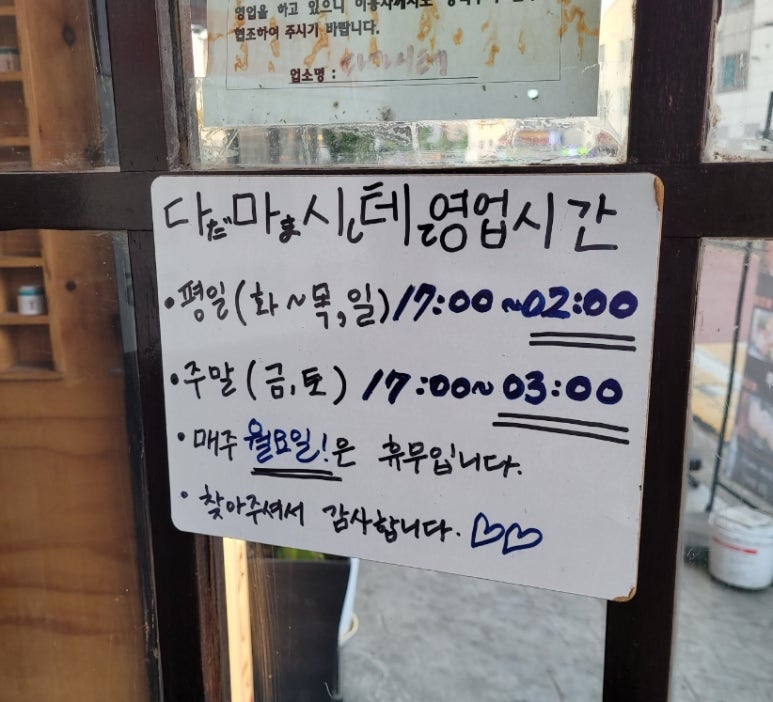 영업을 하고 있으니 이용자께서도
협조하여 주시기 바랍니다.
업소명 :
다だ마ま시し테 영업시간
• 평일(화~목,일) 17:00~02:00
• 주말(금,토) 17:00~03:00
• 매주 월요일!은 휴무입니다.
• 찾아주셔서 감사합니다. ♡♡